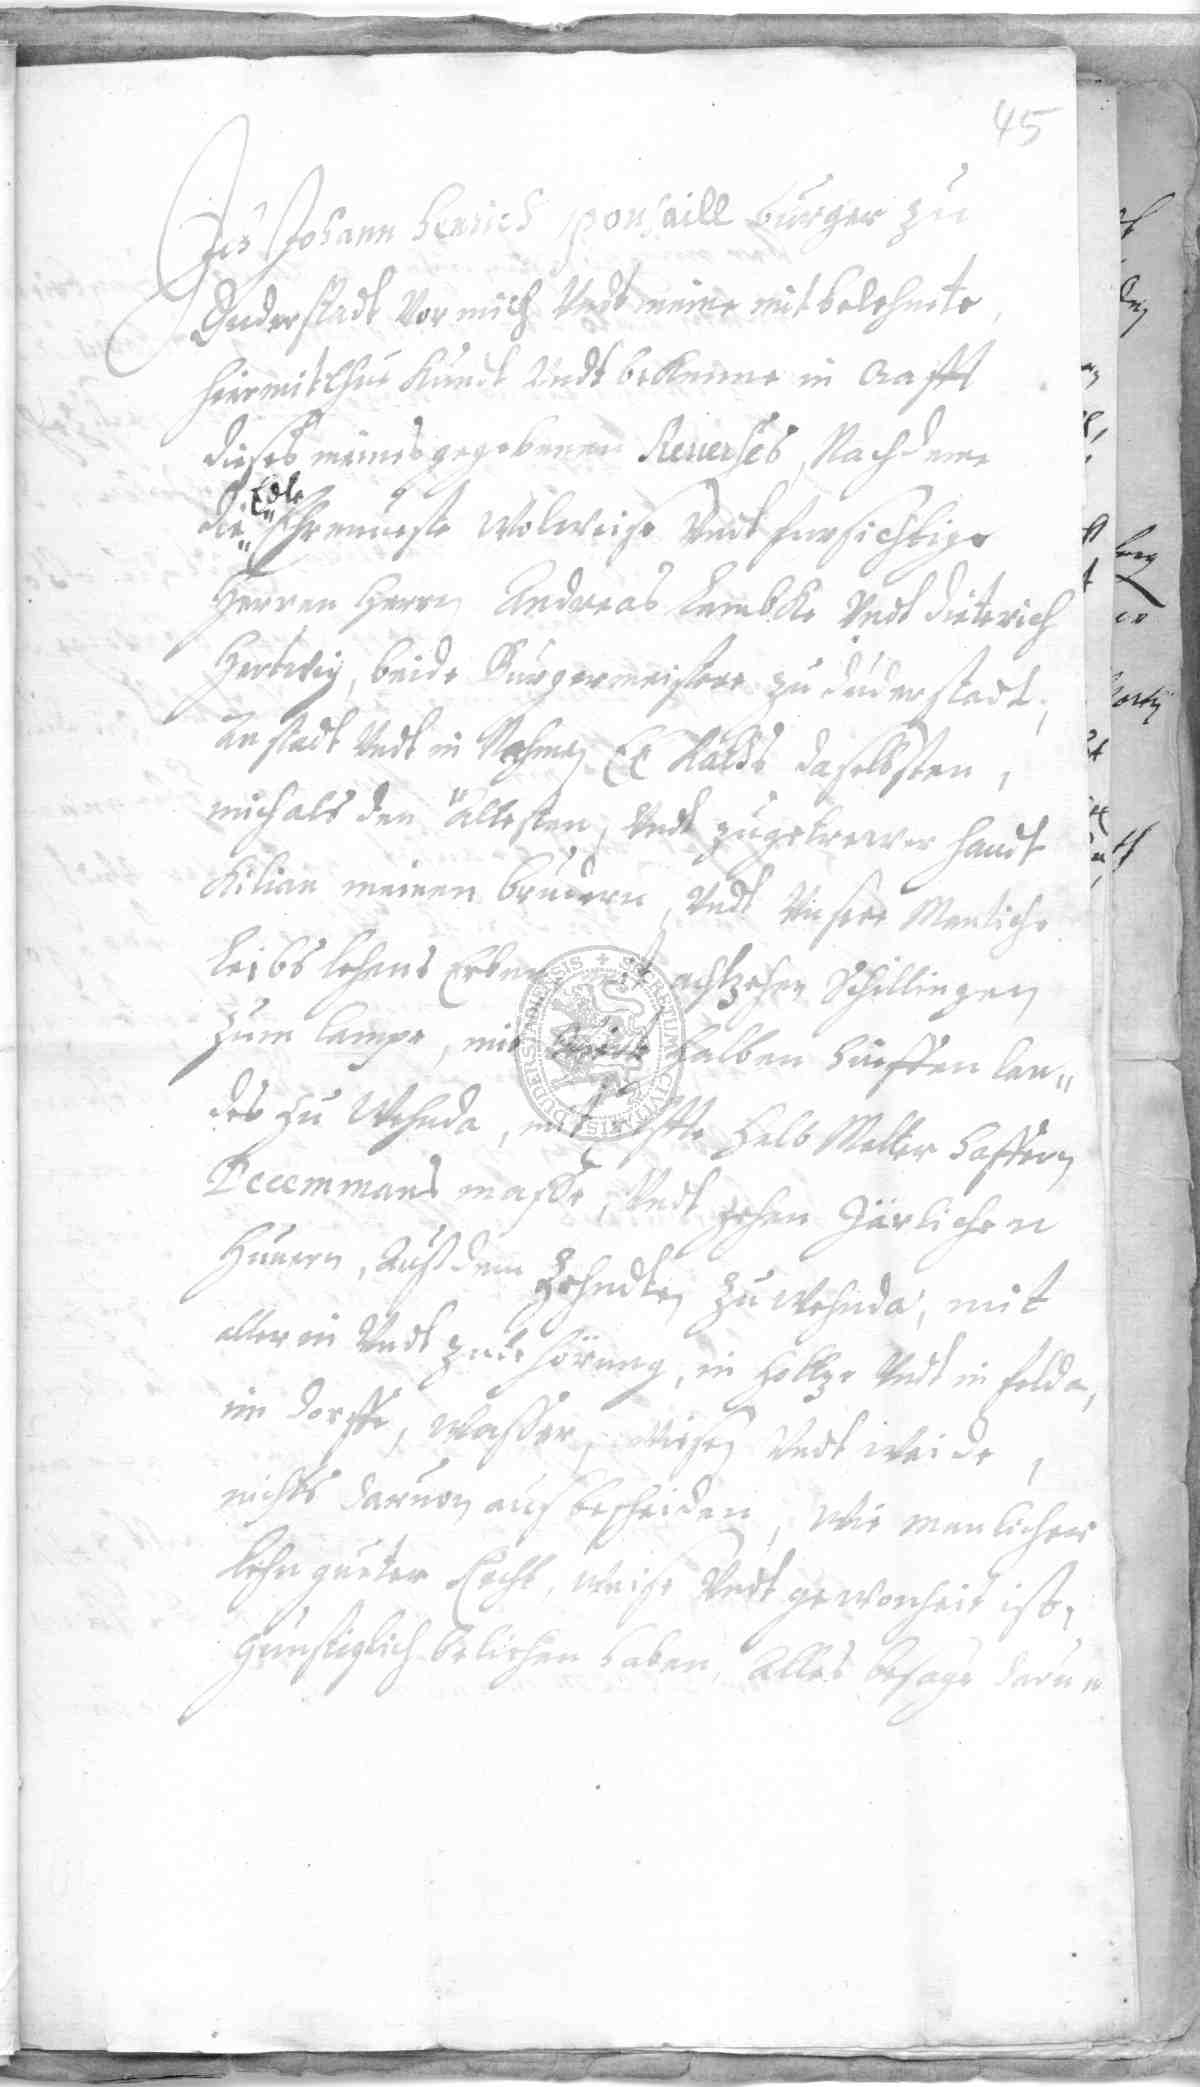 45
Ich Johann Henrich Ponsaill burger zu
Duderstadt Vor mich Undt meine mitbelehnte,
hiermit thue Kundt Undt bekenne in Crafft
dieses meines gegebenen Reuerses, Nachdeme
die Edle Ehrnueste Wolweise Undt fursichtige
Herren Herrn Andreas Lembcke Undt Dieterich
Hertwig, beide Burgermeistere zu Duderstadt,
Anstadt Undt in Nahmen E E Raths daselbsten,
mich als den ältesten, Undt zu getrewer Handt
Kilian meinen brudern, Undt Unsere Menliche
Leibs Lehens Erben mit achtzehen Schillingen
zum Campe, mit halben huffen Lan„
des zu Wehnda, mit halb Malter haffern
Decemmans masse, Undt zehen Järlichen
Hunern, Auß dem Zehndten zu Wehnda, mit
aller in Undt zubehörung, in Holtze Undt in felde,
im dorffe, Wasser, Wiesen Undt Weide,
nichts daruon ausbescheiden, Wie manlicher
Lehngueter Recht, Weise Undt gewonheit ist,
gunstiglich belichen haben, Alles besage darue
SECRETUM CIVITATIS DUDERSTADIENSIS